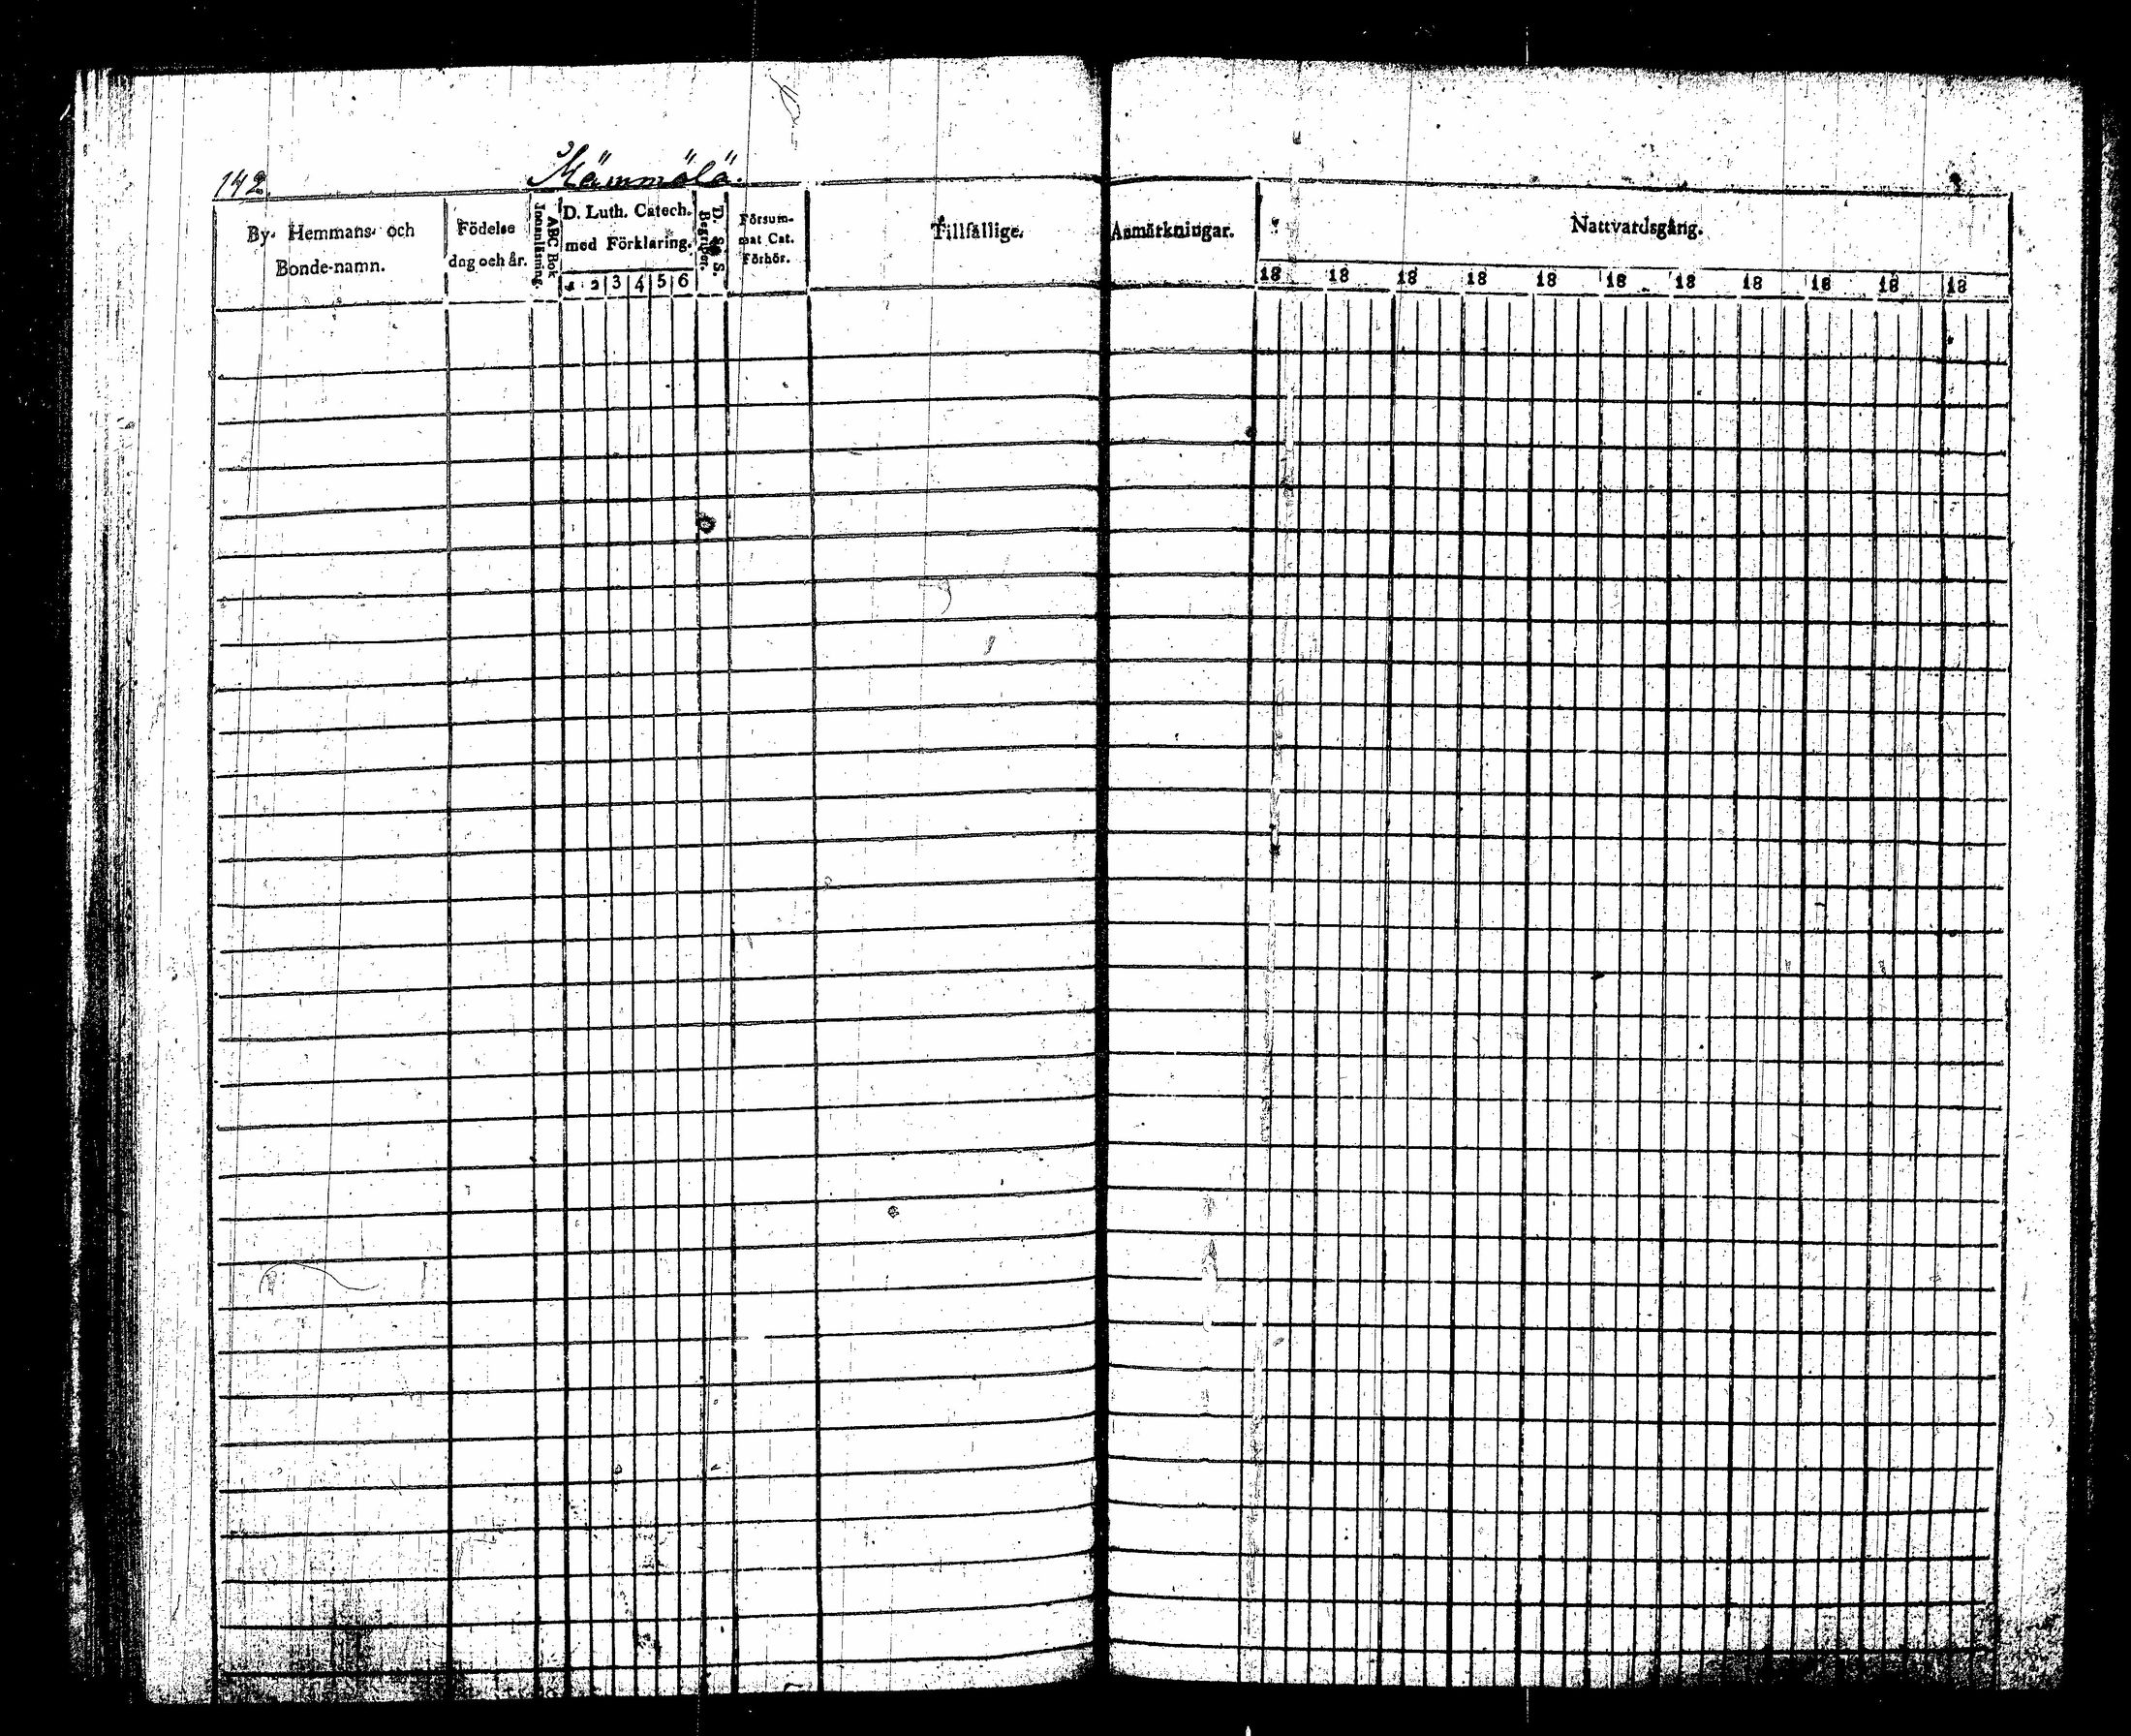 142.
Kämmölä.
By- Hemmans- och
Bonde-namn.
Födelse
dag och år.
ABC Bok
Innanläsning.
D. Luth. Catech.
med Förklaring.
1 2 3 4 5 6
D. S. S.
Begriper.
Försum-
mat Cat.
Förhör.
Tillfällige.
Anmärkningar.
Nattvardsgång.
18 18 18 18 18 18 18 18 18 18 18